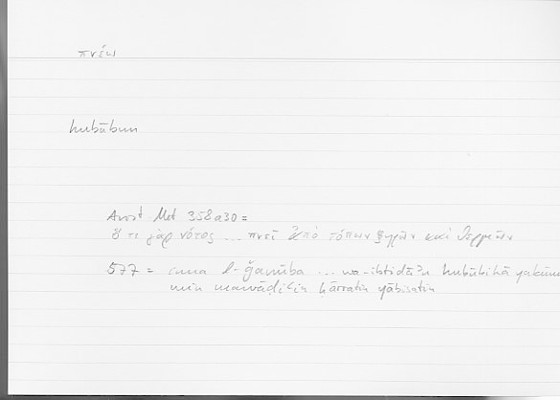 πνέω
hubūbun
Arist Met 358a30 =
ὅ τε γὰρ νότος ... πνεῖ ἀπὸ τόπων ξηρῶν καὶ θερμῶν
577 = inna l-ǧanūba ... wa-ibtidāʾu hubūbihā yakūnu
min mawāḍiʿin ḥārratin yābisatin